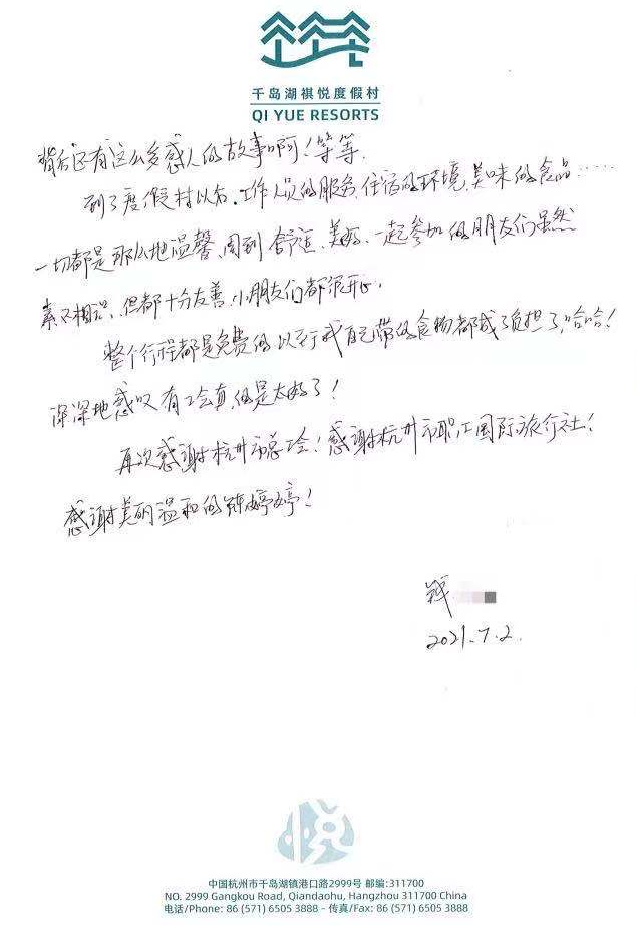 千岛湖祺悦度假村
QI YUE RESORTS
背后还有这么多感人的故事啊！等等.
到了度假村以后，工作人员的服务、住宿的环境、美味的食品……
一切都是那么地温馨、周到、舒适、美好、一起参加的朋友们虽然
素不相识，但都十分友善，小朋友们都很开心。
整个行程都是免费的，以至于我自己带的食物都成了负担了，哈哈！
深深地感叹有工会真的是太好了！
再次感谢杭州市总工会！感谢杭州市职工国际旅行社！
感谢美丽温和的韩婷婷！
2021.7.2.
悦
中国杭州市千岛湖镇港口路2999号 邮编:311700
NO. 2999 Gangkou Road, Qiandaohu, Hangzhou 311700 China
电话/Phone: 86 (571) 6505 3888 - 传真/Fax: 86 (571) 6505 3888